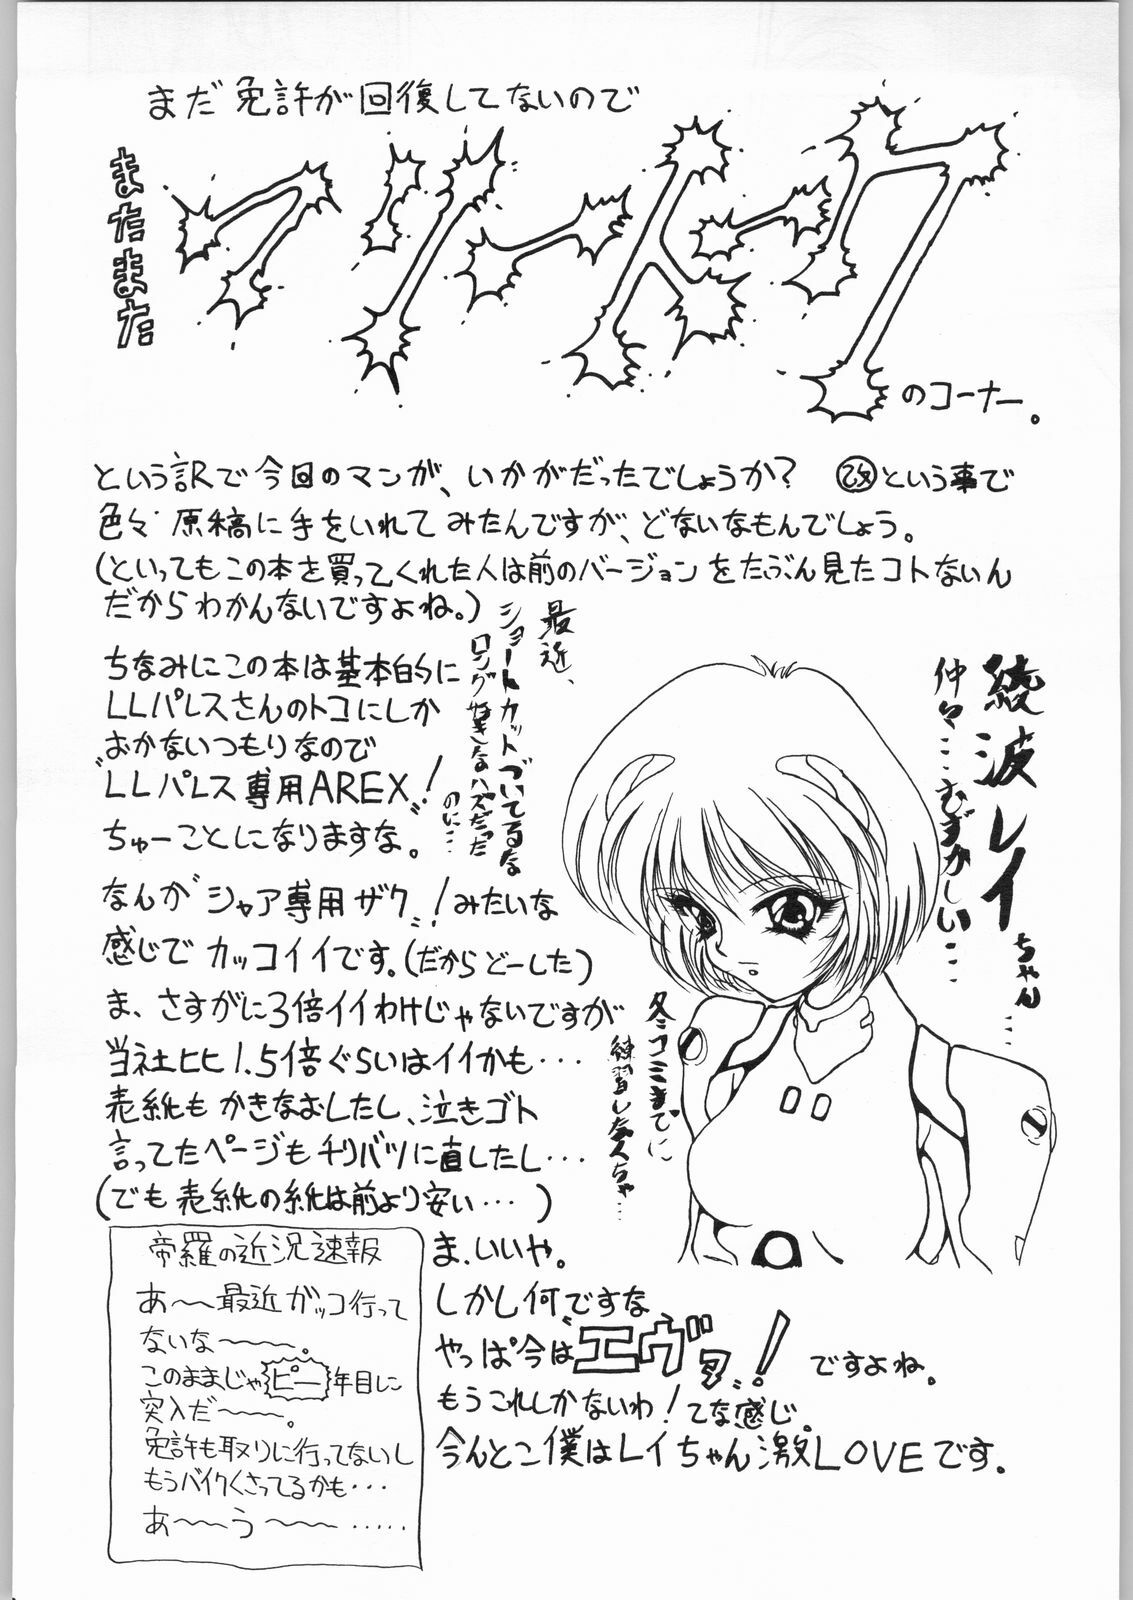 まだ免許が回復してないので
またまた
フリートーク
のコーナー。
という訳で今回のマンガ、いかがだったでしょうか? 改という事で
色々原稿に手をいれてみたんですが、どないなもんでしょう。
(といってもこの本を買ってくれた人は前のバージョンをたぶん見たコトないん
だからわかんないですよね。)
ちなみにこの本は基本的に
LLパレスさんのトコにしか
おかないつもりなので
“LLパレス専用AREX”!
ちゅーことになりますな。
なんか“シャア専用ザク”!みたいな
感じでカッコイイです。(だからどーした)
ま、さすがに3倍イイわけじゃないですが
当社ヒヒ1.5倍ぐらいはイイかも・・・
表紙もかきなおしたし、泣きゴト
言ってたページもチリバツに直したし・・・
(でも表紙の紙は前より安い・・・)
最近、
ショートカットづいてるな
ロング好きしなのハズだった
のに・・・
綾波レイちゃん・・・
仲々・・・むずかしい・・・
冬コミまでに
練習しなくちゃ・・・
ま、いいや。
しかし何ですな
やっぱ今は“エヴァ”!ですよね。
もうこれしかないわ!てな感じ。
今んとこ僕はレイちゃん激LOVEです。
帝羅の近況速報
あ〜〜最近ガッコ行って
ないな〜〜〜。
このままじゃピー年目に
突入だ〜〜〜。
免許も取りに行ってないし
もうバイクくさってるかも・・・
あ〜〜う〜〜〜・・・・・